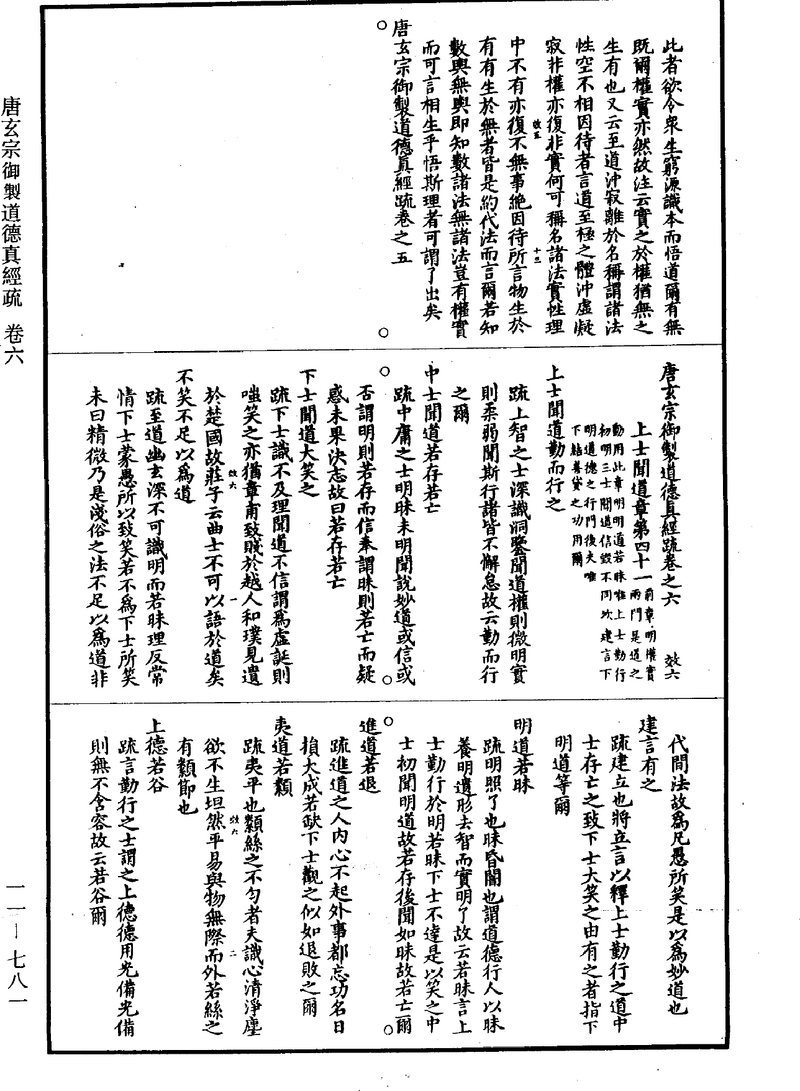 唐玄宗御製道德真經疏　卷六
一一—七八一
此者欲令衆生窮源識本而悟道爾有無
既爾權實亦然故注云實之於權猶無之
生有也又云至道沖寂離於名稱謂諸法
性空不相因待者言道至極之體沖虛凝
寂非權亦復非實何可稱名諸法實性理
中不有亦復不無事絶因待所言物生於
效五
十二
有有生於無者皆是約代法而言爾若知
數輿無輿即知數諸法無諸法豈有權實
而可言相生乎悟斯理者可謂了出矣
唐玄宗御製道德真經疏卷之五
唐玄宗御製道德真經疏卷之六
效六
上士聞道章第四十一
前章明權實
兩門是道之
動用此章明明道若昧唯上士勤行
初明三士聞道信毀不同次建言下
明道德之行門後夫唯
下結善貸之功用爾
上士聞道勤而行之
疏上智之士深識洞鑒聞道權則微明實
則柔弱聞斯行諸皆不懈怠故云勤而行
之爾
中士聞道若存若亡
疏中庸之士明昧未明聞說妙道或信或
否謂明則若存而信奉謂昧則若亡而疑
惑未果決志故曰若存若亡
下士聞道大笑之
疏下士識不及理聞道不信謂爲虛誕則
嗤笑之亦猶章甫致賤於越人和璞見遺
效六
一
於楚國故莊子云曲士不可以語於道矣
不笑不足以爲道
疏至道幽玄深不可識明而若昧理反常
情下士蒙愚所以致笑若不爲下士所笑
未曰精微乃是淺俗之法不足以爲道非
代間法故爲凡愚所笑是以爲妙道也
建言有之
疏建立也將立言以釋上士勤行之道中
士存亡之致下士大笑之由有之者指下
明道等爾
明道若昧
疏明照了也昧昏闇也謂道德行人以昧
養明遺形去智而實明了故云若昧言上
士勤行於明若昧下士不達是以笑之中
士初聞明道故若存後聞如昧故若亡爾
進道若退
疏進道之人內心不起外事都忘功名日
損大成若缺下士觀之似如退敗之爾
夷道若纇
疏夷平也纇絲之不勻者夫識心清淨塵
欲不生坦然平易與物無際而外若絲之
效六
二
有纇節也
上德若谷
疏言勤行之士謂之上德德用光備光備
則無不含容故云若谷爾